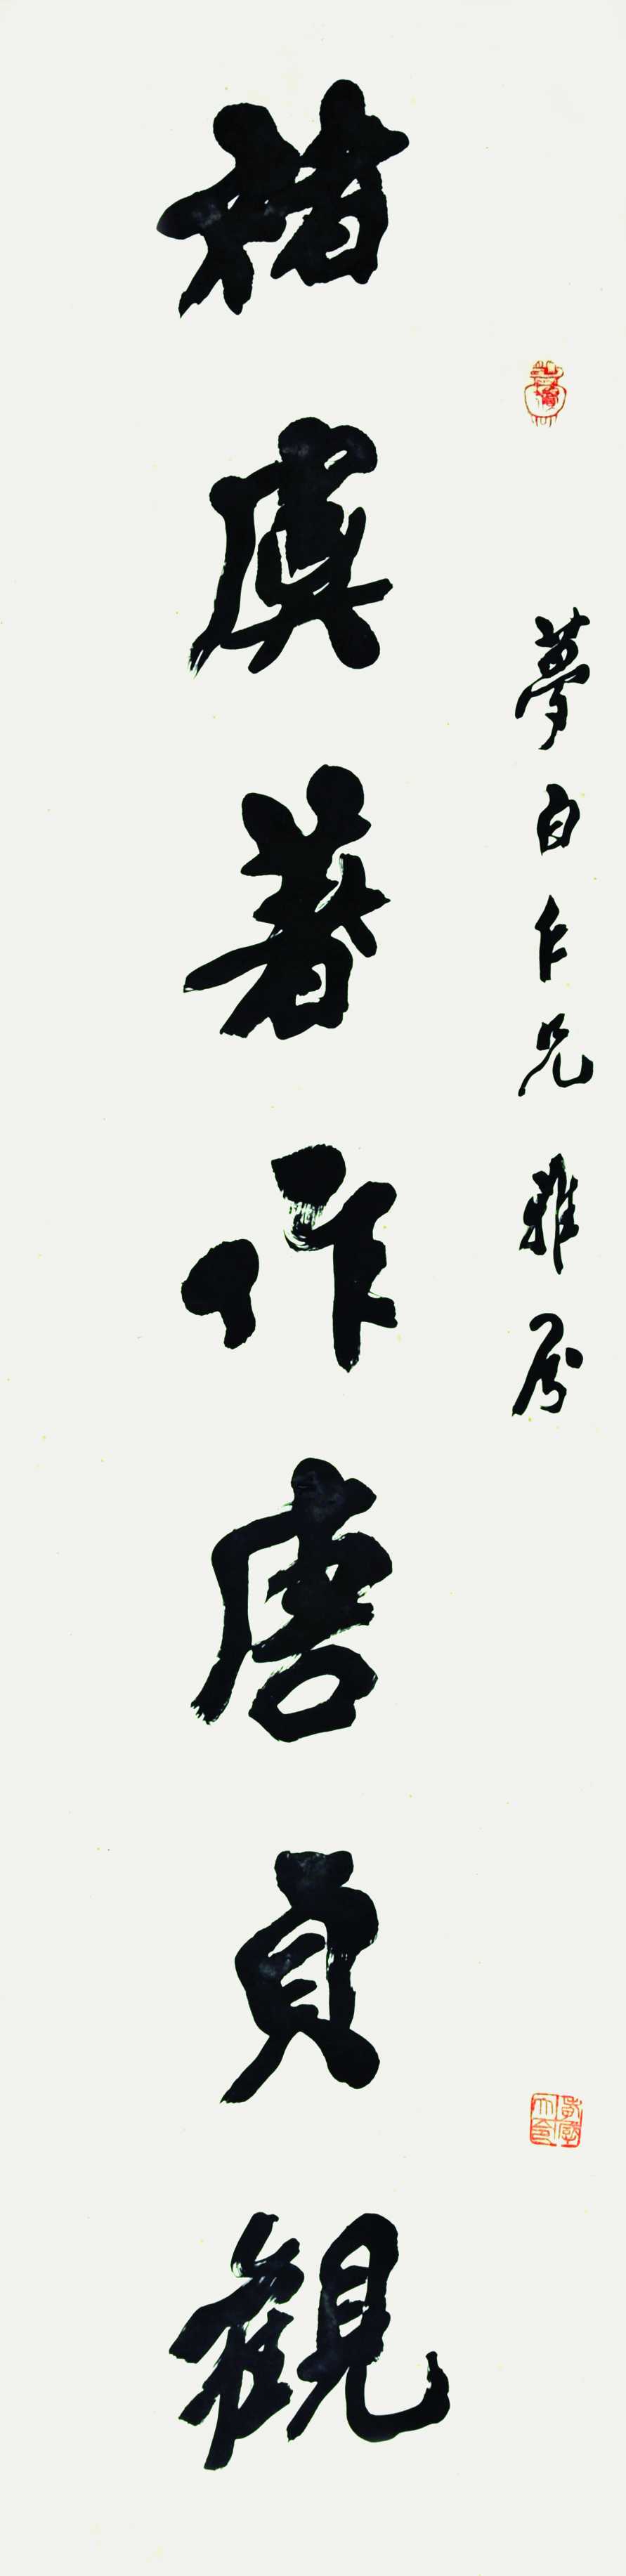 夢白仁兄雅屬
褚虞著作唐貞觀